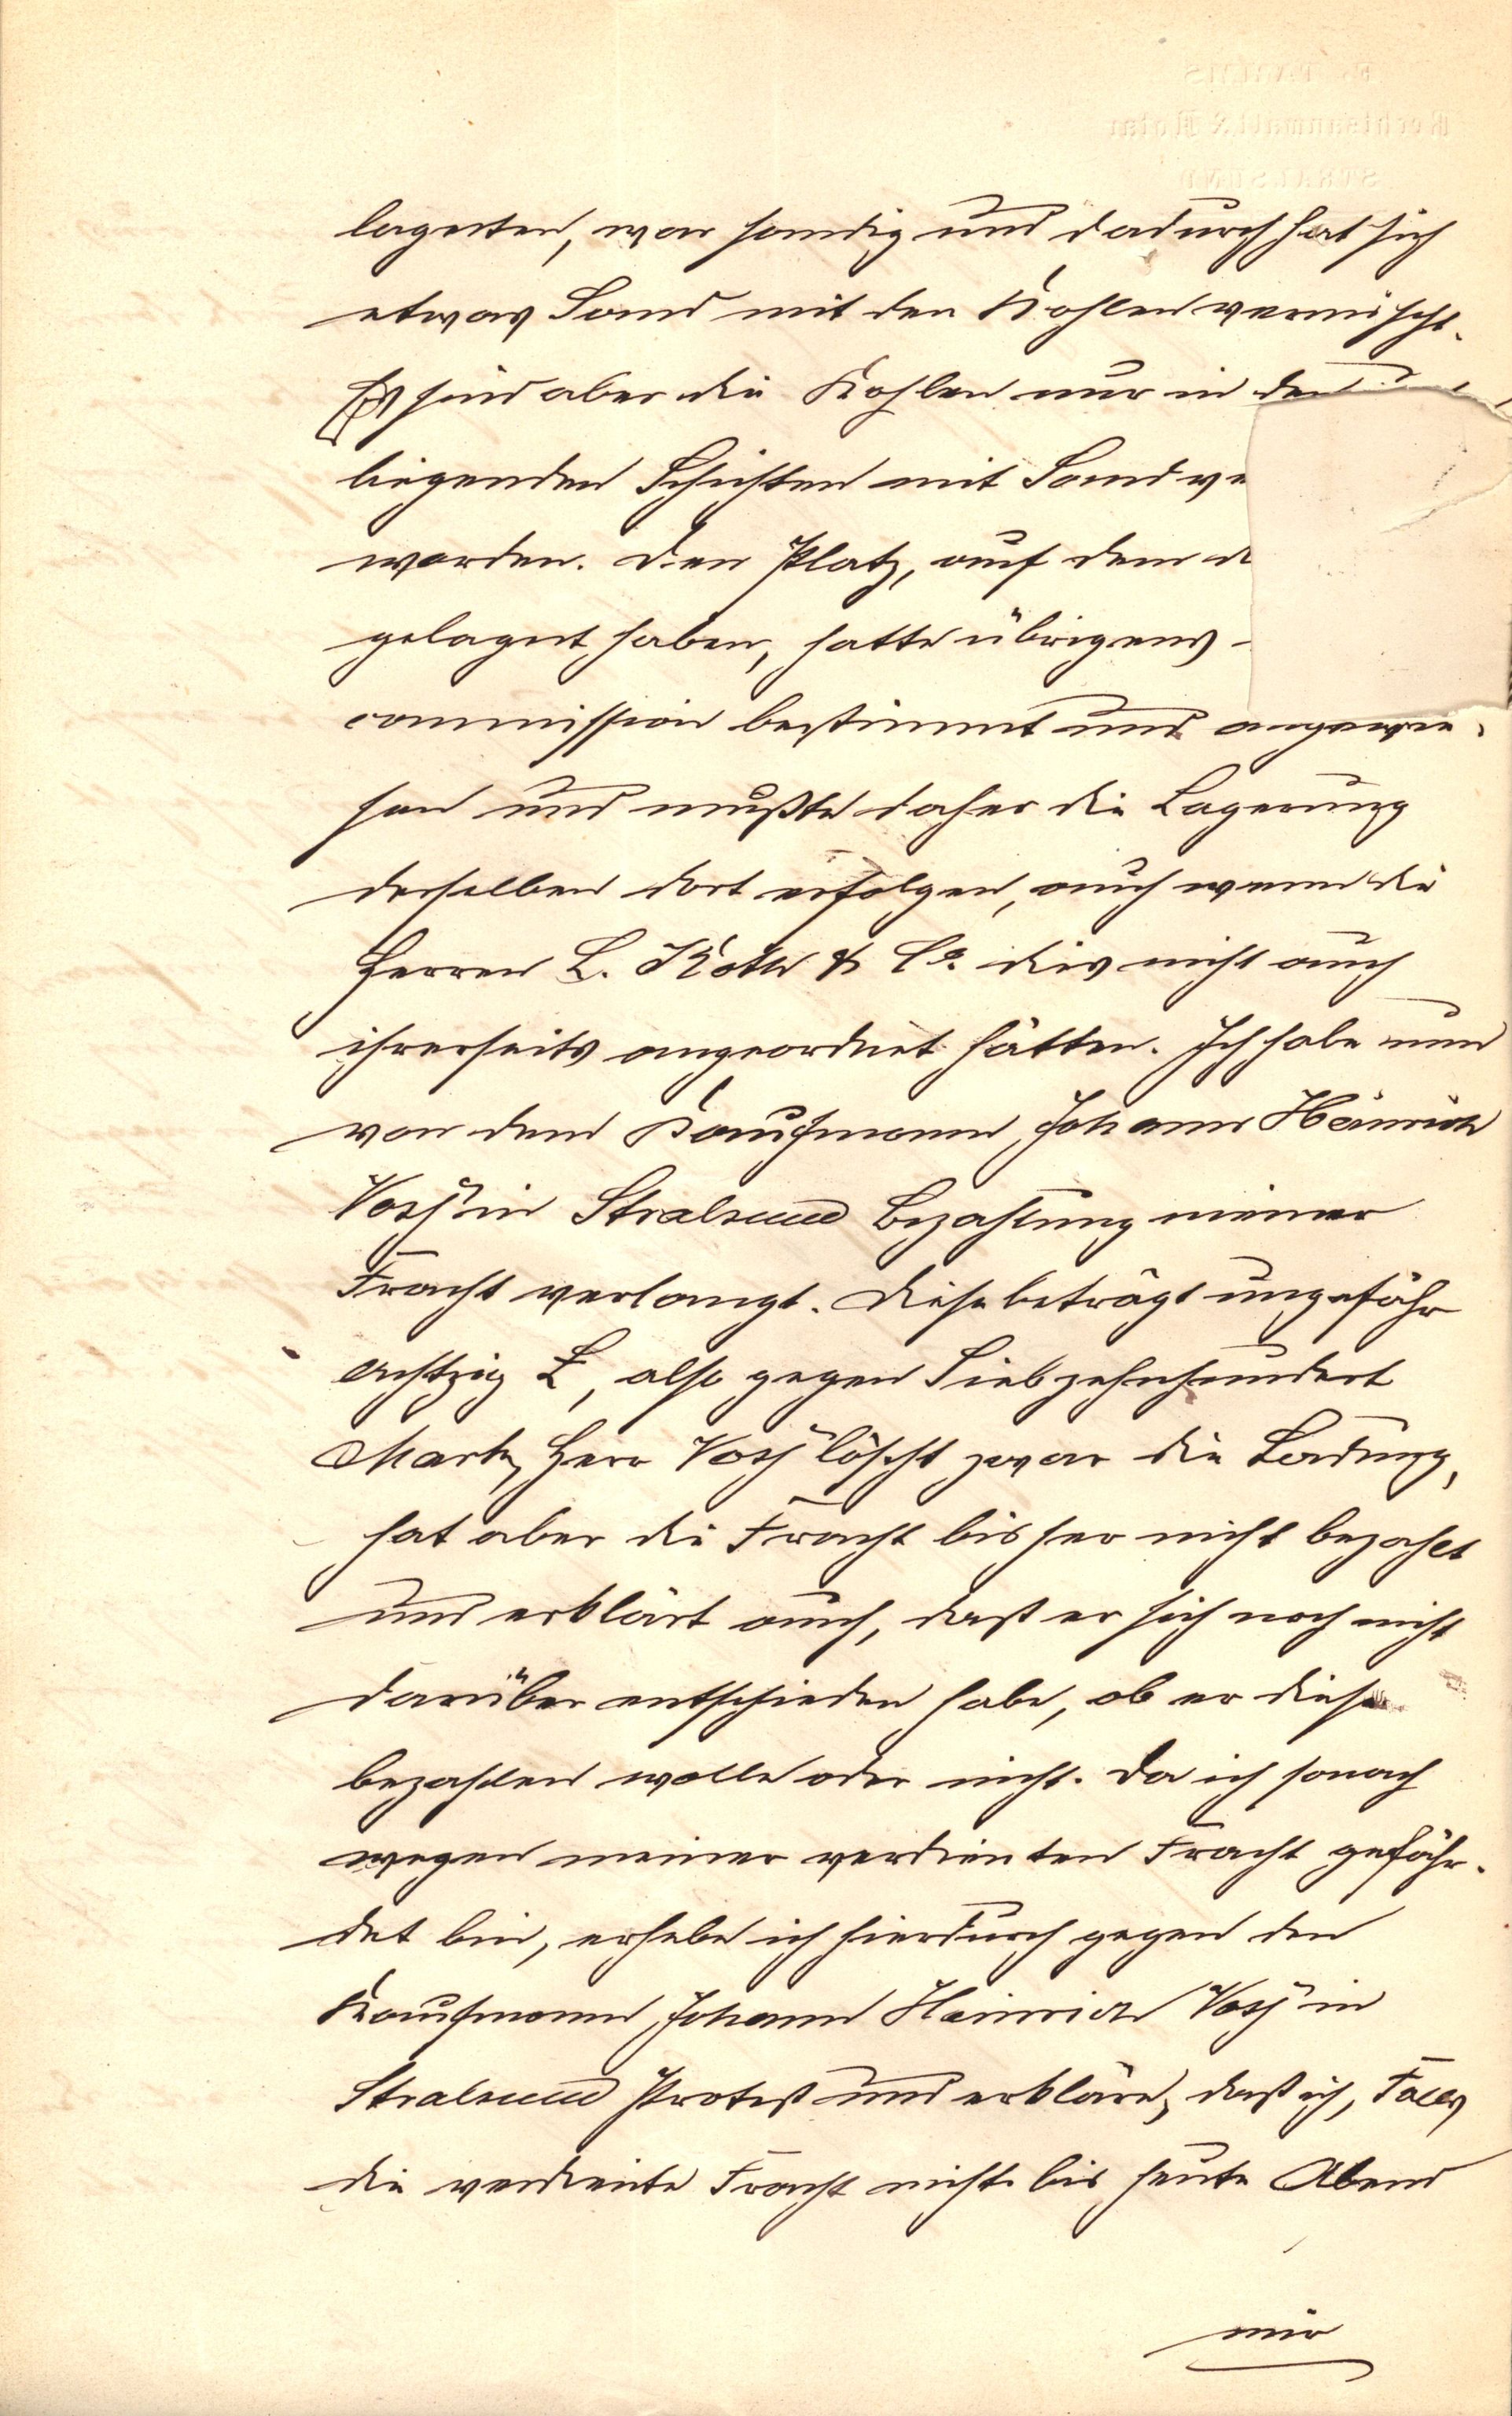 lagerten, war sandig und dadurch hat sich
etwas Sand mit den Kohlen vermischt.
Es sind aber die Kohlen nur in den
liegenden Schichten mit Sand ve
worden. Den Platz, auf dem d
gelagert haben, hatte übrigens
commission bestimmt und angewie-
sen und mußte daher die Lagerung
derselben dort erfolgen, auch wenn die
Herren L. Koth & Co. dies nicht auch
ihrerseits angeordnet hätten. Ich habe nun
von dem Kaufmann Johann Heinrich
Vosz in Stralsund Bezahlung meiner
Fracht verlangt. Diese beträgt ungefähr
achtzig £, also gegen Siebzehnhundert
Mark, Herr Vosz löscht zwar die Ladung,
hat aber die Fracht bisher nicht bezahlt
und erklärt auch, daß er sich noch nicht
darüber entschieden habe, ob er diese
bezahlen wolle oder nicht. Da ich sonach
wegen meiner verdienten Fracht gefähr-
det bin, erhebe ich hierdurch gegen den
Kaufmann Johann Heinrich Vosz in
Stralsund Protest und erkläre, daß ich, Falls
die verdiente Fracht nicht bis heute Abend
mir
Rechtsanwalt & Notar
STRALSUND